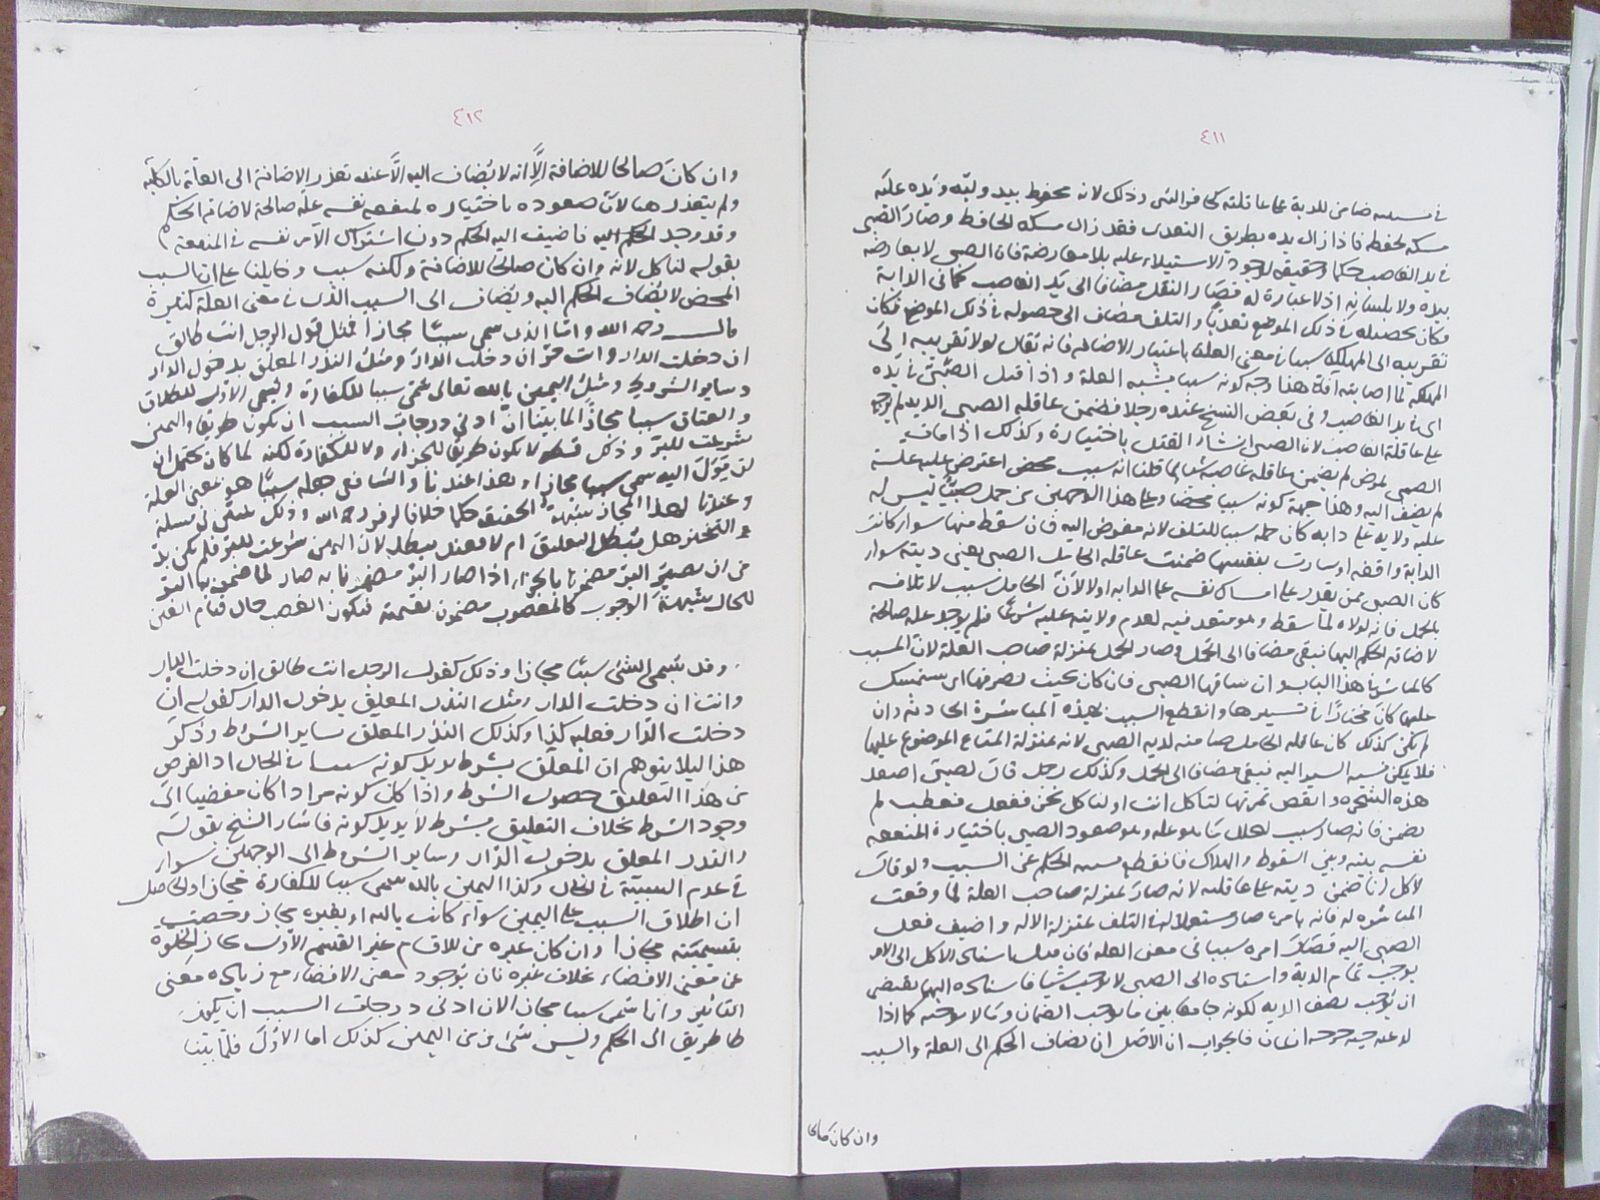 ٤١١
لحفظه فاذا زال يده بطريق التعدى فقد زال مسكه الحافظ وصار الصبى
فى يد الغاصب حكما وحقيقة لوجود الاستيلاء عليه بلا معارضة فان الصبى لا يعارضه
بيده ولا بلسانه اذ لا عبارة له فصار النقل مضافا الى يد الغاصب كما فى الدابة
فكان تحصيله فى ذلك الموضع تعديا والتلف مضاف الى حصوله فى ذلك الموضع فكان
تقريبه الى المهلكة سببا فى معنى العلة باعتبار الاضافة فانه يقال لولا تقريبه الى
المهلكة لما اصابته افة هذا وجه كونه سببا يشبه العلة واذا قتل الصبى فى يده
اى فى يد الغاصب وفى بعض النسخ عنده رجلا فضمن عاقلة الصبى الدية لم يرجع
على عاقلة الغاصب لان الصبى انشاء القتل باختياره وكذلك اذا مات
الصبى لمرض لم يضمن عاقلة غاصبه شيا لما قلنا انه سبب محض اعترض عليه علة
لم يضف اليه وهذا جهة كونه سببا محضا وعلى هذا الوجهين من حمل صبيا ليس له
عليه ولاية على دابة كان حمله سببا للتلف لانه مفوض اليه فان سقط منها سواء كانت
الدابة واقفة او سارت بنفسها ضمنت عاقلة الحامل الصبى يعنى ديته سواء
كان الصبى ممن يقدر على امساك نفسه على الدابة اولا لان الحامل سبب لاتلافه
بالحمل فانه لولاه لما سقط وهو متعد فيه لعدم ولايته عليه شرعا فلم يوجد علة صالحة
لاضافة الحكم اليها فبقى مضافا الى الحمل وصار الحمل بمنزلة صاحب العلة لان المسبب
كالمباشر فى هذا الباب وان ساقها الصبى فان كان بحيث يصرفها اى يستمسك
عليها كان مختارا فى تسييرها وانقطع السبب بهذه المباشرة الحادثة وان
لم يكن كذلك كان عاقلة الحامل ضامنة لدية الصبى لانه بمنزلة المتاع الموضوع عليها
فلا يمكن نسبة السير اليه فبقى مضافا الى الحمل وكذلك رجل قال لصبى اصعد
هذه الشجرة وانقض ثمرتها لتأكل انت او لنأكل نحن ففعل فعطب لم
يضمن فانه صار سبب لهلاك ما هو علة وهو صعود الصبى باختياره لمنفعة
نفسه بينه وبين السقوط والهلاك فانقطع نسبة الحكم عن السبب ولو قال
لاكل انا ضمن ديته على عاقلته لانه صار بمنزلة صاحب العلة لما وقعت
المباشرة له فانه بامره صار مستعملا له التلف بمنزلة الالة واضيف فعل
الصبى اليه فصار امره سببا فى معنى العلة فان قيل اسناد الاكل الى الامر
يوجب تمام الدية واسناده الى الصبى لا يوجب شيا فاسناده اليهما يقتضى
ان يوجب نصف الدية لكونه جامعا بين ما يوجب الضمان وما لا يوجبه كما اذا
فالجواب ان الاصل ان يضاف الحكم الى العلة والسبب
وان كان صالحا
٤١٢
وان كان صالحا للاضافة الا انه لا يضاف اليه الا عند تعذر الاضافة الى العلة بالكلية
ولم يتعذر هنا لان صعوده باختياره لمنفعة نفسه علة صالحة لاضافة الحكم
وقد وجد الحكم اليه فاضيف اليه الحكم دون اشتراك الآمر نفسه فى المنفعة
بقوله لنأكل لانه وان كان صالحا للاضافة ولكنه سبب وذا يلينا على ان السبب
المحض لا يضاف الحكم اليه ويضاف الى السبب الذى فى معنى العلة كثيرة
قال رحمه الله واما الذى سمى سببا مجازا فمثل قول الرجل انت طالق
ان دخلت الدار وانت حر ان دخلت الدار ومثل النذر المعلق بدخول الدار
وساير الشروط ومثل اليمين بالله تعالى سمى سببا للكفارة وتسمى الاول للطلاق
والعتاق سببا مجازا لما بينا ان ادنى درجات السبب ان يكون طريقا واليمين
شرعت للبر وذلك قط لا يكون طريقا للجزاء ولا للكفارة لكنه لما كان يحتمل ان
يؤل اليه سمى سببا مجازا وهذا عندنا والشافعى جعله سببا هو بمعنى العلة
وعندنا لهذا المجاز شبهة الحقيقة حكما خلافا لزفر رحمه الله وذلك يتبين فى مسئلة
التنجيز هل يبطل التعليق ام لا فعندنا يبطله لان اليمين شرعت للبر فلم يكن بد
من ان يصير البر مضمونا بالجزاء واذا صار البر مضمونا به صار لما ضمن به البر
للحال شبهة الوجوب كالمغصوب مضمون بقيمته فيكون الغصب حال قيام العين
وقد يسمى الشئ سببا مجازا وذلك كقول الرجل انت طالق ان دخلت الدار
وانت ان دخلت الدار ومثل النذر المعلق بدخول الدار كقوله ان
دخلت الدار فعليه كذا وكذلك النذر المعلق بساير الشروط وذكر
هذا ليلا يتوهم ان المعلق بشرط يريد كونه سببا فى الحال اذ الغرض
من هذا التعليق حصول الشرط واذا كان كونه مرادا كان مفضيا الى
وجود الشرط بخلاف التعليق بشرط لا يريد كونه فاشار الشيخ بقوله
والنذر المعلق بدخول الدار وساير الشروط الى الوجهين سواء
فى عدم السببية فى الحال وكذا اليمين بالله سمى سببا للكفارة مجازا والحاصل
ان اطلاق السبب على اليمين سواء كانت بالله او بغيره مجاز وخصت
بتسميته مجازا وان كان غيره من الاقسام غير القسم الاول مجاز لخلوه
عن معنى الافضاء بخلاف غيره فان بوجود معنى الافضاء مع زيادة معنى
التأثير وانما سمى سببا مجازا لان ادنى درجات السبب ان يكون
طريقا الى الحكم وليس شئ من اليمين كذلك اما الاول فلما بينا